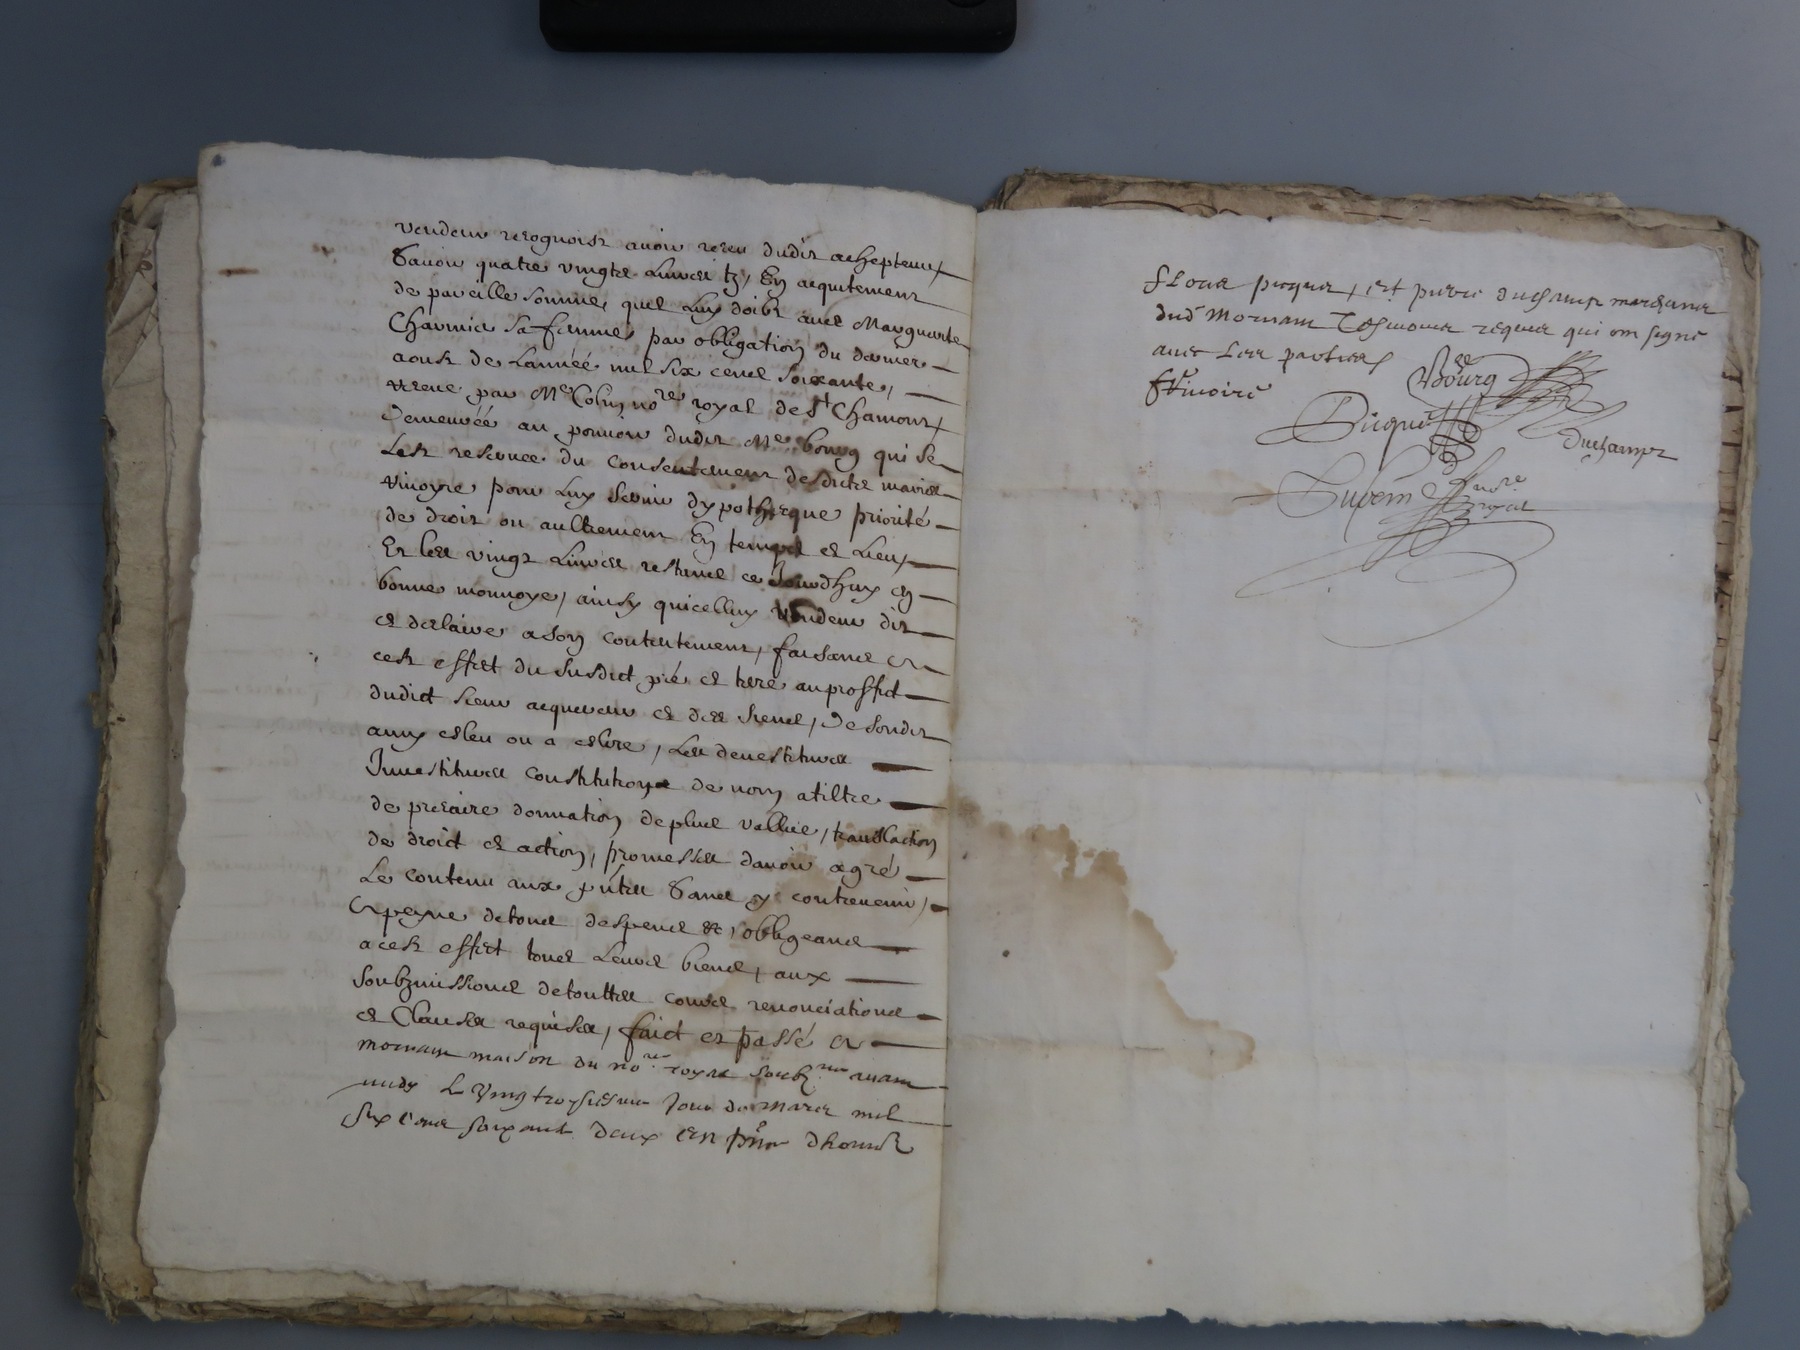 vendeur recognoist avoir receu dudit achepteur,
Savoir quatre vingtz Livres tz, En acquitement
de pareille somme, quil Luy doibt avec Marguerite
Charvica sa femme, par obligation du dernier
aoust de L'année mil six cens soixante,
receue par Me Colin, nore royal de St Chamont,
Demeurée au pouvoir dudit Me bourg qui se
Lest reservee du consentement desdicts mariés
vinoyre pour Luy servir dypothecque priorité
de droit ou aultrement En temps et Lieu,
Et les vingt Livres restans ce Jourdhuy en
bonne monnoye, ainsy quicelluy vendeur dit
et declaire a son contentement, faisans en
cest effect du susdict pré et terre au proffict
dudict sieur acquereur et des siens, De sondit
amy esleu ou a eslire, Les devestitures
Investitures constitutions de nom, a tiltre
de precaire donnation de plus vallue, translaction
de droict et action, promesses davoir agré
Le contenu aux pntes Sans y contrevenir,
A peyne de tous despens &c, obligeans
a cest effect tous Leurs biens, aux
soubzmissions de touttes cours renonciations
et Clauses requises, faict et passé a
mornant maison du nore royal soubzne avant
midy Le Vingtroysiesme Jour de mars mil
six cens soixante deux en pnce dhonor
Flory picquet, et pierre duchamp marchans
dud mornant Tesmoins requis qui ont signé
avec Les parties
f Vinoire
Bourg
Picquet
Duchamps
Dupern nore
royal